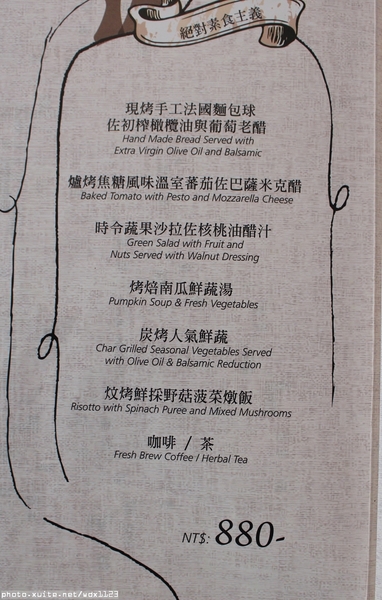 絕對素食主義
現烤手工法國麵包球
佐初榨橄欖油與葡萄老醋
Hand Made Bread Served with
Extra Virgin Olive Oil and Balsamic
爐烤焦糖風味溫室蕃茄佐巴薩米克醋
Baked Tomato with Pesto and Mozzarella Cheese
時令蔬果沙拉佐核桃油醋汁
Green Salad with Fruit and
Nuts Served with Walnut Dressing
烤焙南瓜鮮蔬湯
Pumpkin Soup & Fresh Vegetables
炭烤人氣鮮蔬
Char Grilled Seasonal Vegetables Served
with Olive Oil & Balsamic Reduction
炆烤鮮採野菇菠菜燉飯
Risotto with Spinach Puree and Mixed Mushrooms
咖啡 / 茶
Fresh Brew Coffee / Herbal Tea
NT$: 880-
photo.xuite.net/wdx1123